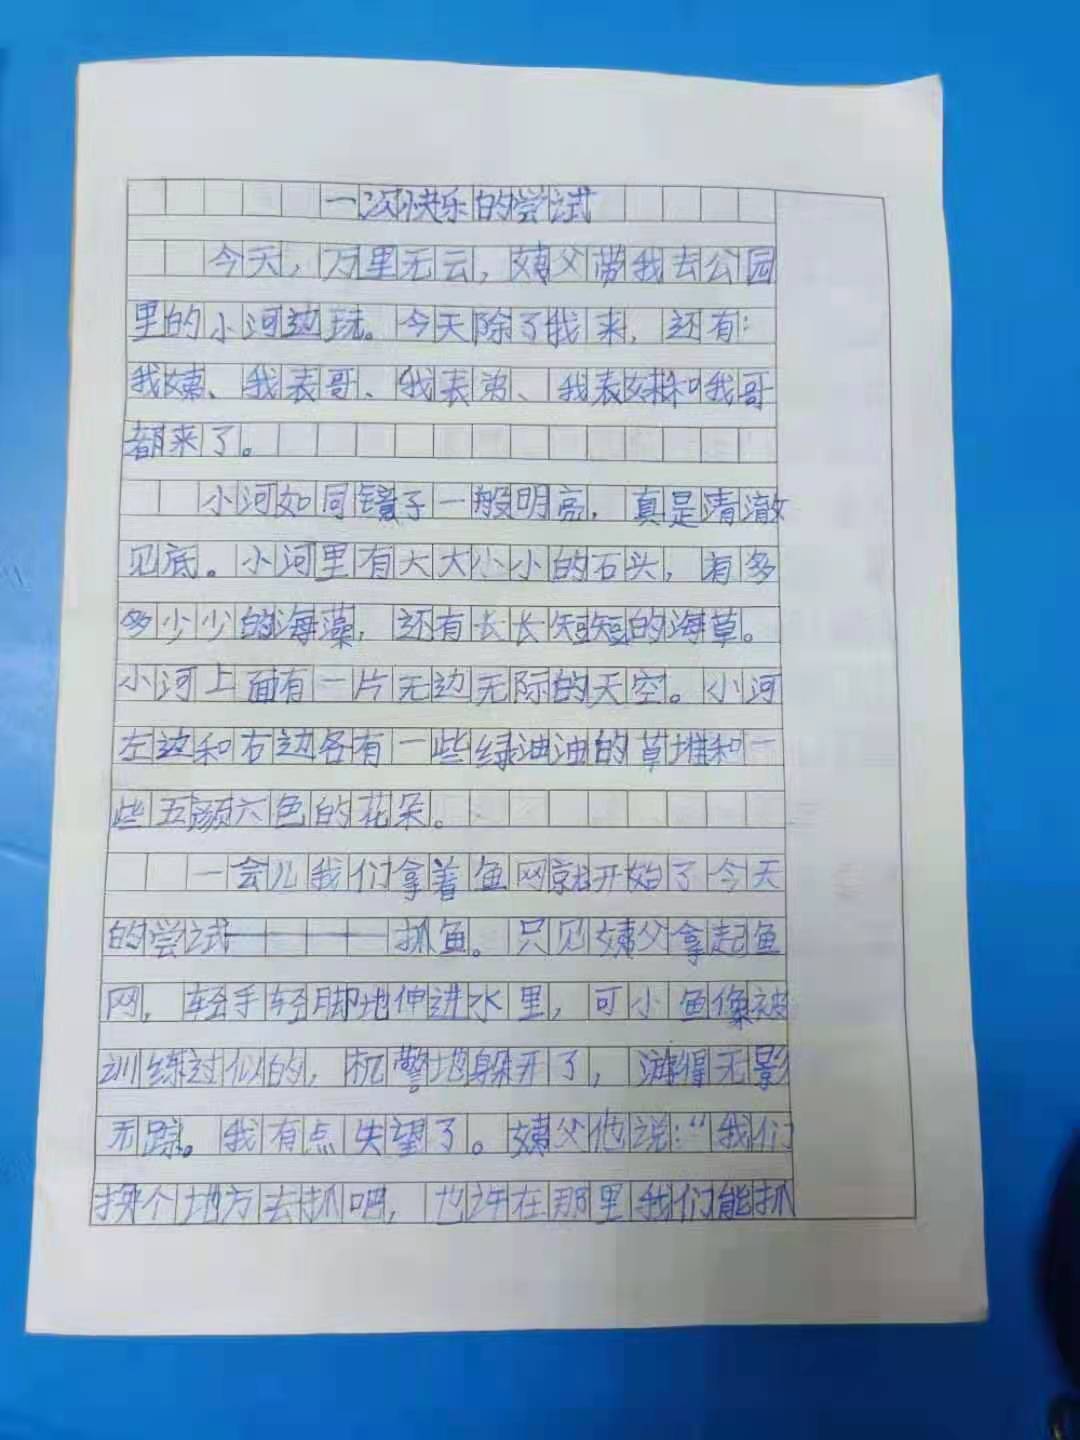 一次快乐的尝试
今天，万里无云，姨父带我去公园
里的小河边玩。今天除了我来，还有：
我姨、我表哥、我表弟、我表妹和我哥
都来了。
小河如同镜子一般明亮，真是清澈
见底。小河里有大大小小的石头，有多
多少少的海藻，还有长长短短的海草。
小河上面有一片无边无际的天空。小河
左边和右边各有一些绿油油的草堆和一
些五颜六色的花朵。
一会儿我们拿着鱼网就开始了今天
的尝试————抓鱼。只见姨父拿起鱼
网，轻手轻脚地伸进水里，可小鱼像被
训练过似的，机警地躲开了，游得无影
无踪。我有点失望了。姨父他说：“我们
换个地方去抓吧，也许在那里我们能抓